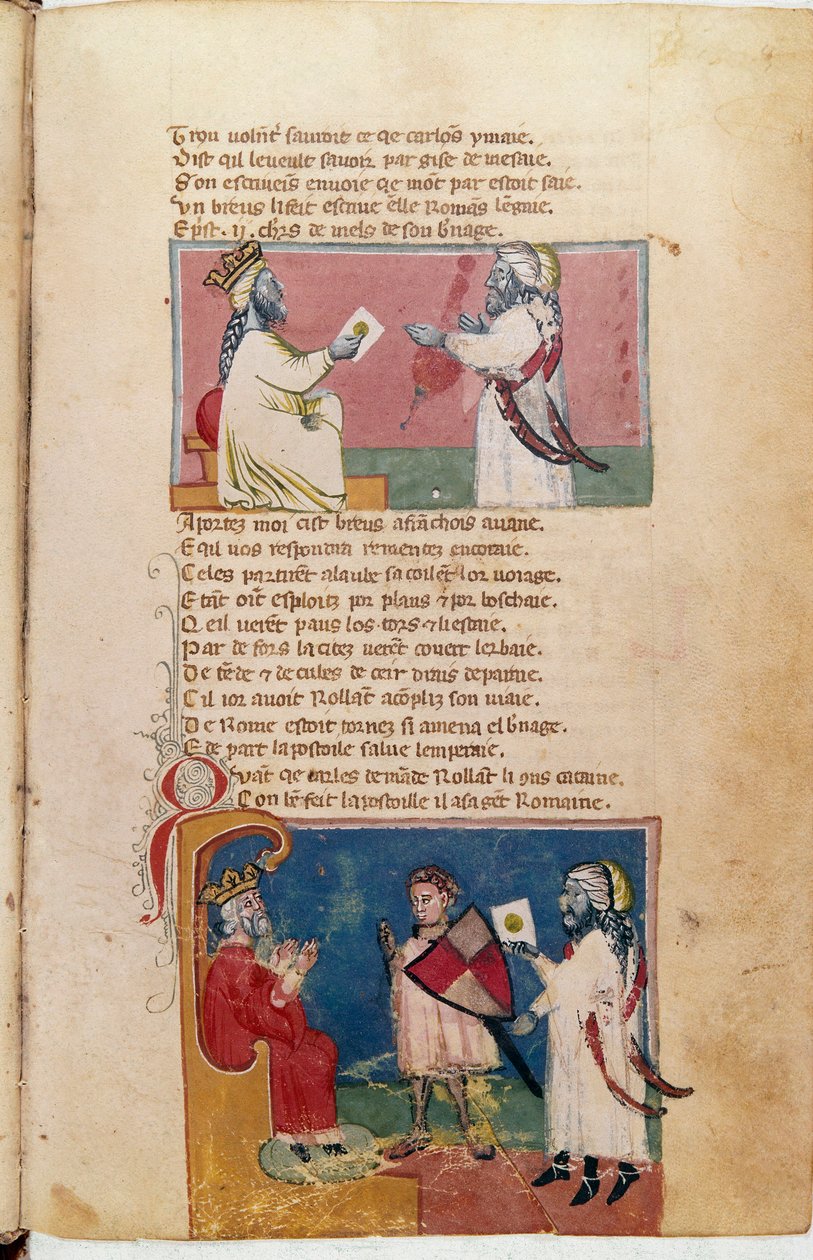 Trou volnt̃ sauroit ce qe carlos̃ ymaie.
Dist qil leveult savoir par gise de mesaie.
Son escriveis̃ envoie qe mot̃ par estoit saie.
Vn breus li feit escrive ẽlle Romãs lẽgaie.
E p̃st . ii . ch̃rs de mels de son b̃nage.
Aportez moi cist breus a frãchois avant.
E qil vos respondra
Celes partirẽt alaube sa coilẽt lor voiage.
E tãt oir̃t esploitz por plans ⁊ por boschaie.
Qeil virẽt paus los tors ⁊ li estaie.
Par de fors la citez virẽt covert lerbaie.
De tẽde ⁊ de cules de ceir dras de
Cil ior avoit Rollãt acõpliz son viaie.
De Rome estoit tornez si amena el b̃nage.
E de part lapostoile salue
Qvãt qe carles demãde Rollãt li cataine.
Con bẽ feit lapostoille il a sa gẽt Romaine.